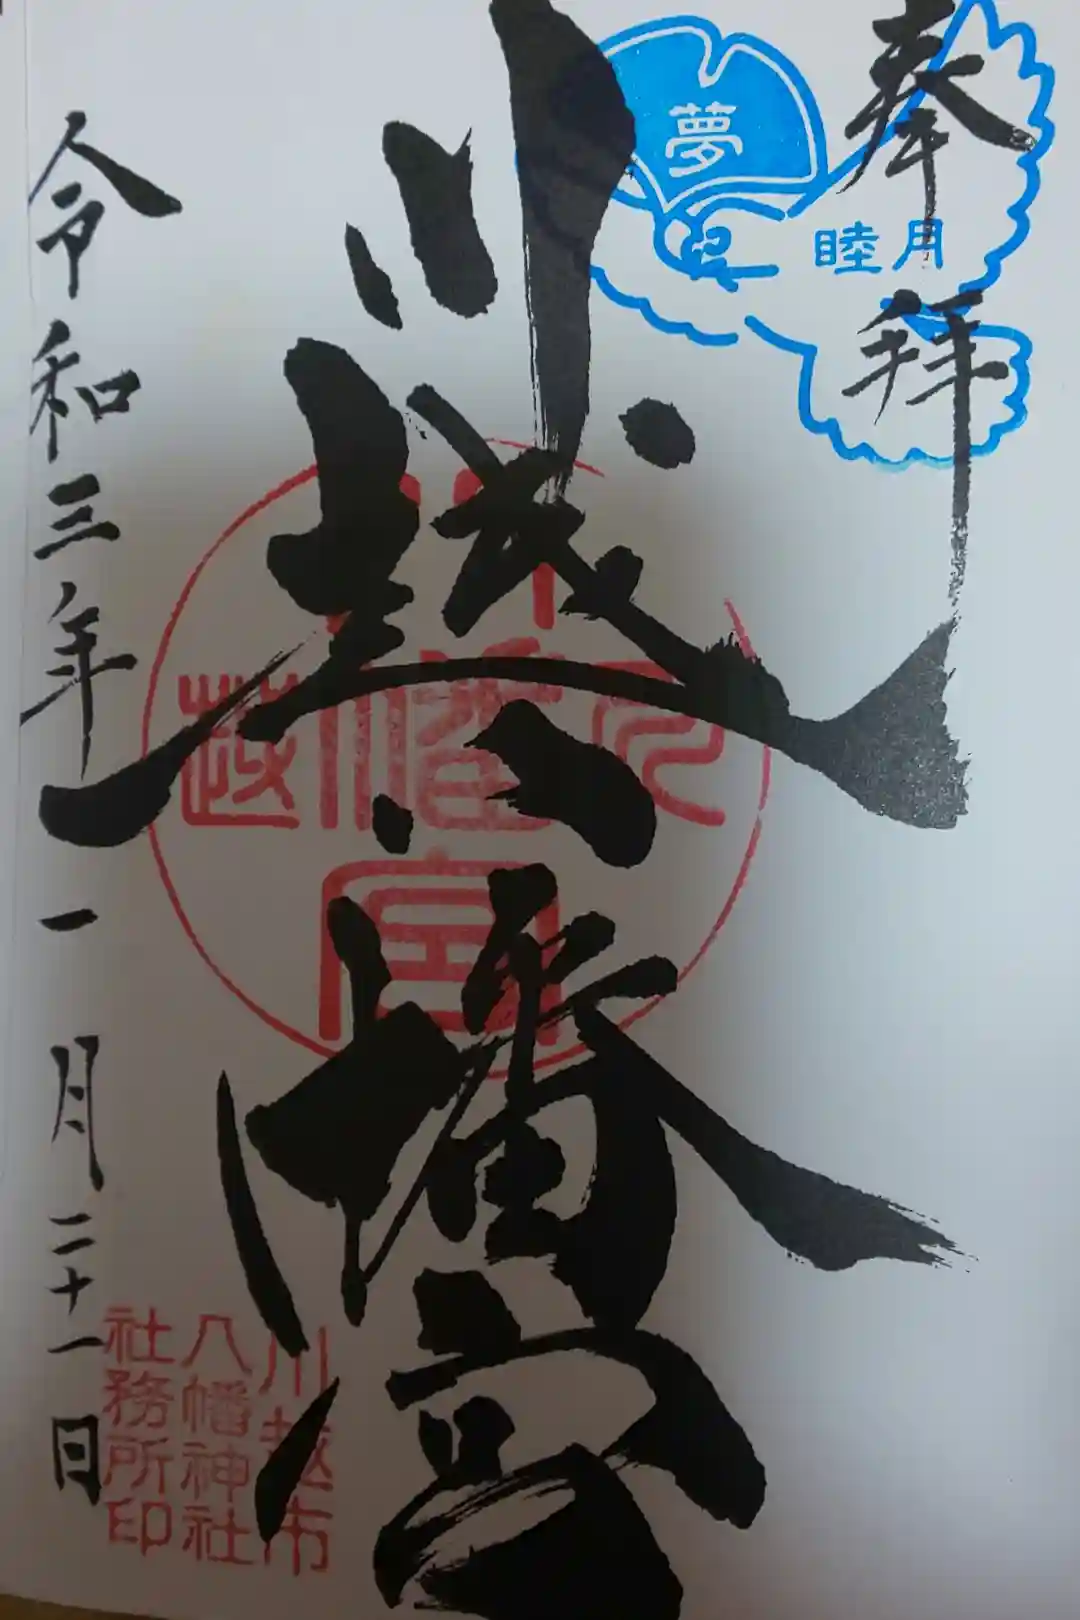 奉拝
夢
睦月
川越八幡宮
川越
八幡
宮
令和三年一月二十一日
川越市
八幡神社
社務所印